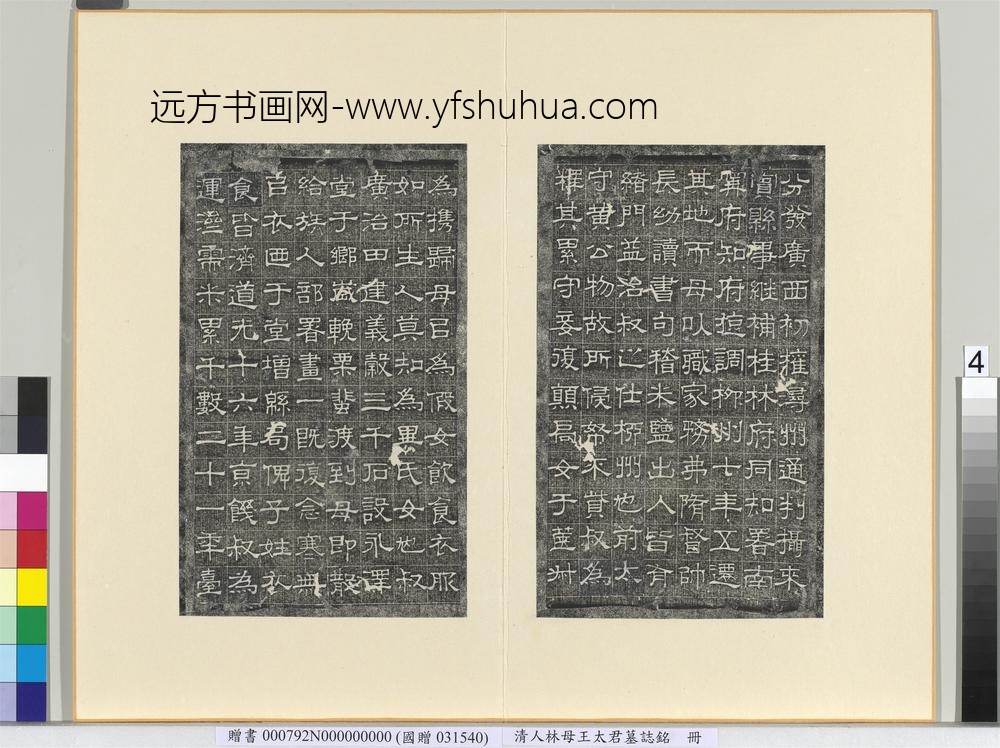 远方书画网-www.yfshuhua.com
分發廣西初擢潯州通判攝來
賓縣事繼補桂林府同知署南
寧府知府㨂調柳州七年五遷
其地而母以職家務弗隋督帥
長幼讀書句稽米鹽出入皆有
緒門益治叔之仕柳州也前太
守黃公物故所帑不貲叔為
釋其累守妾復顛扃女于莝艸
為攜歸母㠯為假女飲食衣服
如所生人莫知為異氏女也叔
廣治田建義穀三千石設永澤
堂于鄉歲輓粟蜚渡到母即散
給族人部署畫一既復念寒無
㠯衣迺于堂增緜局俾子姓衣
食皆濟道光十六年京饑叔為
運需米累千數二十一年臺
4
贈書 000792N000000000 (國贈 031540)
清人林母王太君墓誌銘 冊